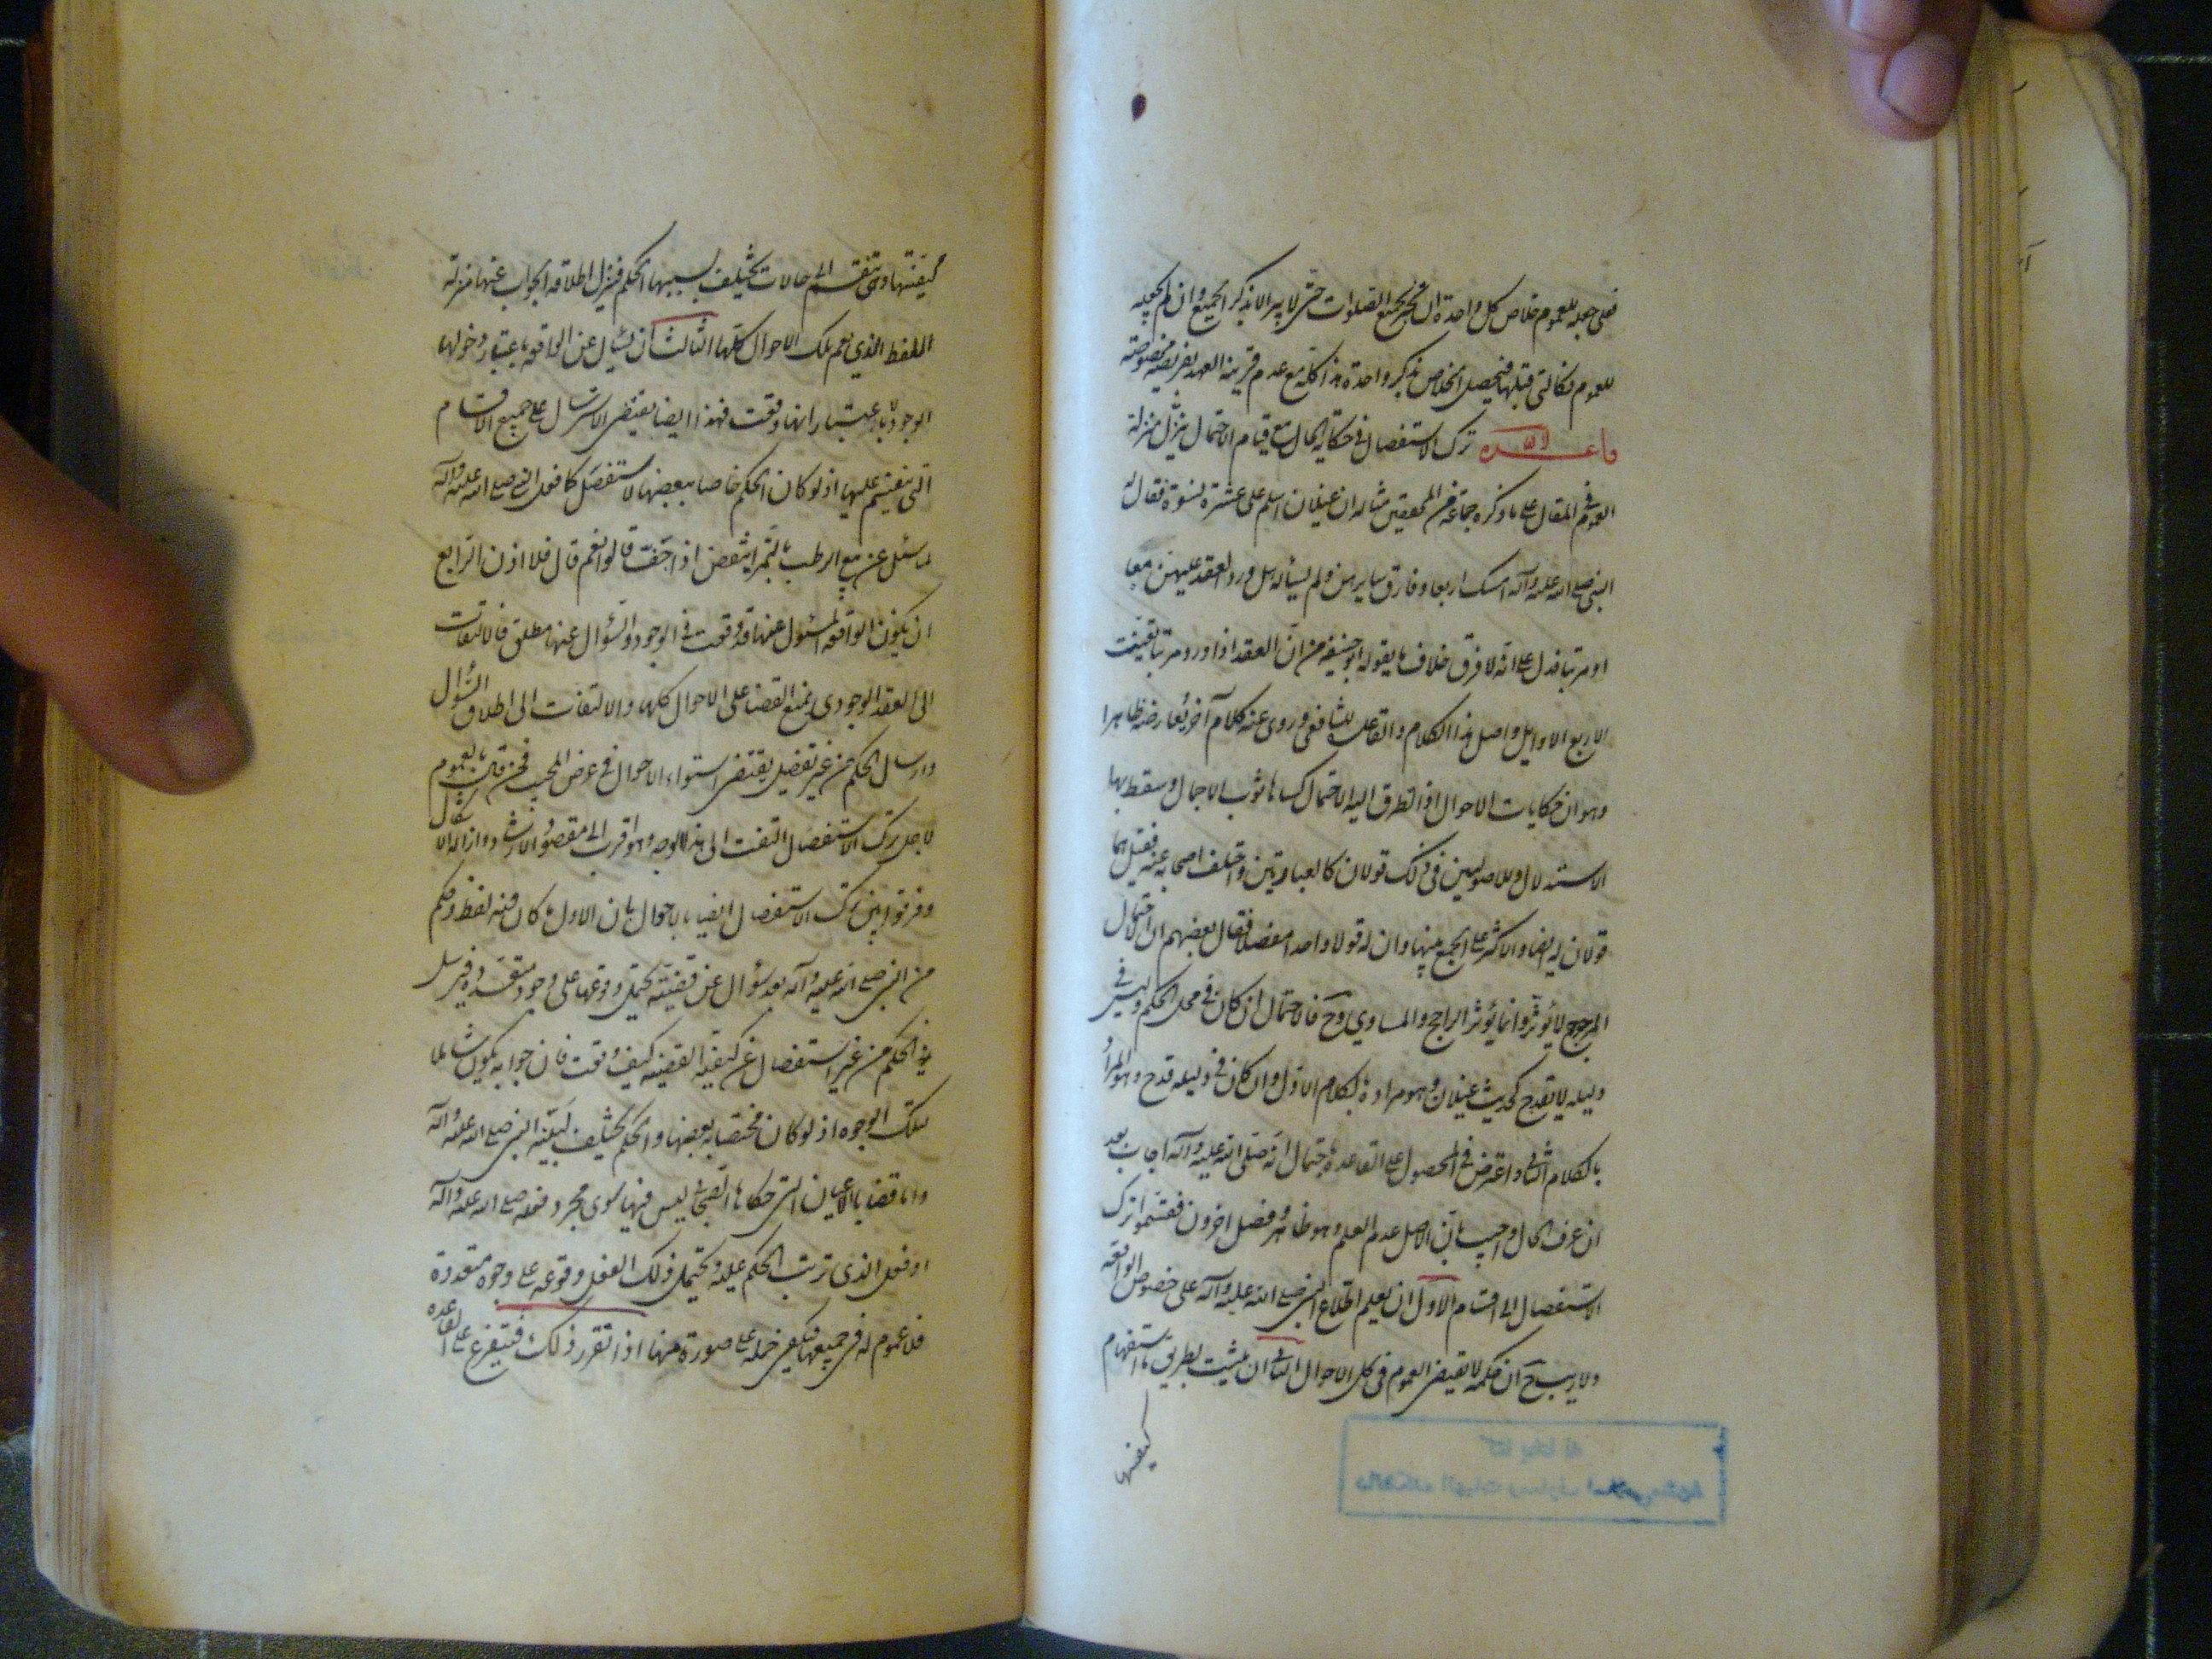 فعلى جعله للعموم خلاص كل واحدة ان تخبر بجميع الصلوات حتى لا يبر الا بذكر الجميع وان لم نجعله
للعموم فكالتي قبلها فيحصل الخلاص بذكر واحدة هذا كله مع عدم قرينة العهد بفريضة مخصوصة
قاعدة ترك الاستفصال في حكاية الحال مع قيام الاحتمال ينزل منزلة
العموم في المقال على ما ذكره جماعة من المحققين مثاله ان غيلان اسلم على عشرة نسوة فقال له
النبي صلى الله عليه وآله امسك اربعا وفارق سايرهن ولم يسأله هل ورد العقد عليهن معا
او مرتبا فدل على انه لا فرق خلاف ما يقوله ابو حنيفة من ان العقد اذا ورد مرتبا تعينت
الاربع الاوايل واصل هذا الكلام والقاعدة للشافعي وروي عنه كلام آخر يعارضه ظاهرا
وهو ان حكايات الاحوال اذا تطرق اليه الاحتمال كساها ثوب الاجمال وسقط بها
الاستدلال وللاصوليين في ذلك قولان كالعبارتين واختلف اصحابه عنه فقيل هما
قولان له ايضا والاكثر على الجمع بينها وان له قولا واحدا مفصلا فقال بعضهم ان الاحتمال
المرجوح لا يؤثر وانما يؤثر الراجح والمساوي وح فالاحتمال ان كان في محل الحكم وليس في
دليله لا يقدح كحديث غيلان وهو مراده بالكلام الاول وان كان في دليله قدح وهو المراد
بالكلام الثاني واعترض في المحصول على القاعدة باحتمال انه صلى الله عليه وآله اجاب بعد
ان عرف الحال واجيب بان الاصل عدم العلم وهو ظاهر وفصل اخرون فقسموا ترك
الاستفصال الى اقسام الاول ان يعلم اطلاع النبي صلى الله عليه وآله على خصوص الواقعة
ولا ريب ح ان حكمه لا يقتضي العموم في كل الاحوال الثاني ان يثبت بطريق ما استفهام
كيفيتها
كيفيتها وهي تنقسم الى حالات يختلف بسببها الحكم فينزل اطلاقه الجواب عنها منزلة
اللفظ الذي يعم تلك الاحوال كلها الثالث ان يسأل عن الواقعة باعتبار دخولها
الوجود لا باعتبار انها وقعت فهذا ايضا يقتضي الاسترسال على جميع الاقسام
التي ينقسم عليها اذ لو كان الحكم خاصا ببعضها لاستفصل كما فعل النبي صلى الله عليه وآله
لما سئل عن بيع الرطب بالتمر اينقص اذا جف قالوا نعم قال فلا اذن الرابع
ان يكون الواقعة المسئول عنها قد وقعت في الوجود والسؤال عنها مطلق فالالتفات
الى العقد الوجودي يمنع القضا على الاحوال كلها والالتفات الى اطلاق السؤال
وارسال الحكم من غير تفصيل يقتضي استواء الاحوال في غرض المجيب فمن قال بالعموم
لاجل ترك الاستفصال التفت الى هذا الوجه وهو اقرب الى مقصود الارشاد وازالة الاشكال
وفرقوا بين ترك الاستفصال ايضا بان الاول ما كان فيه لفظ وحكم
من النبي صلى الله عليه وآله بعد سؤال عن قضية يحتمل وقوعها على وجوه متعددة فيرسل
الحكم من غير استفصال عن كيفية القضية كيف وقعت فان جوابه يكون شاملا
لتلك الوجوه اذ لو كان مختصا ببعضها والحكم يختلف لبينه النبي صلى الله عليه وآله
واما قضايا الاعيان التي حكاها الصحابي ليس فيها سوى مجرد فعله صلى الله عليه وآله
او فعل الذي ترتب الحكم عليه ويحتمل ذلك الفعل وقوعه على وجوه متعددة
فلا عموم له في جميعها فيكفي حمله على صورة منها اذا تقرر ذلك فيتفرع على القاعدة